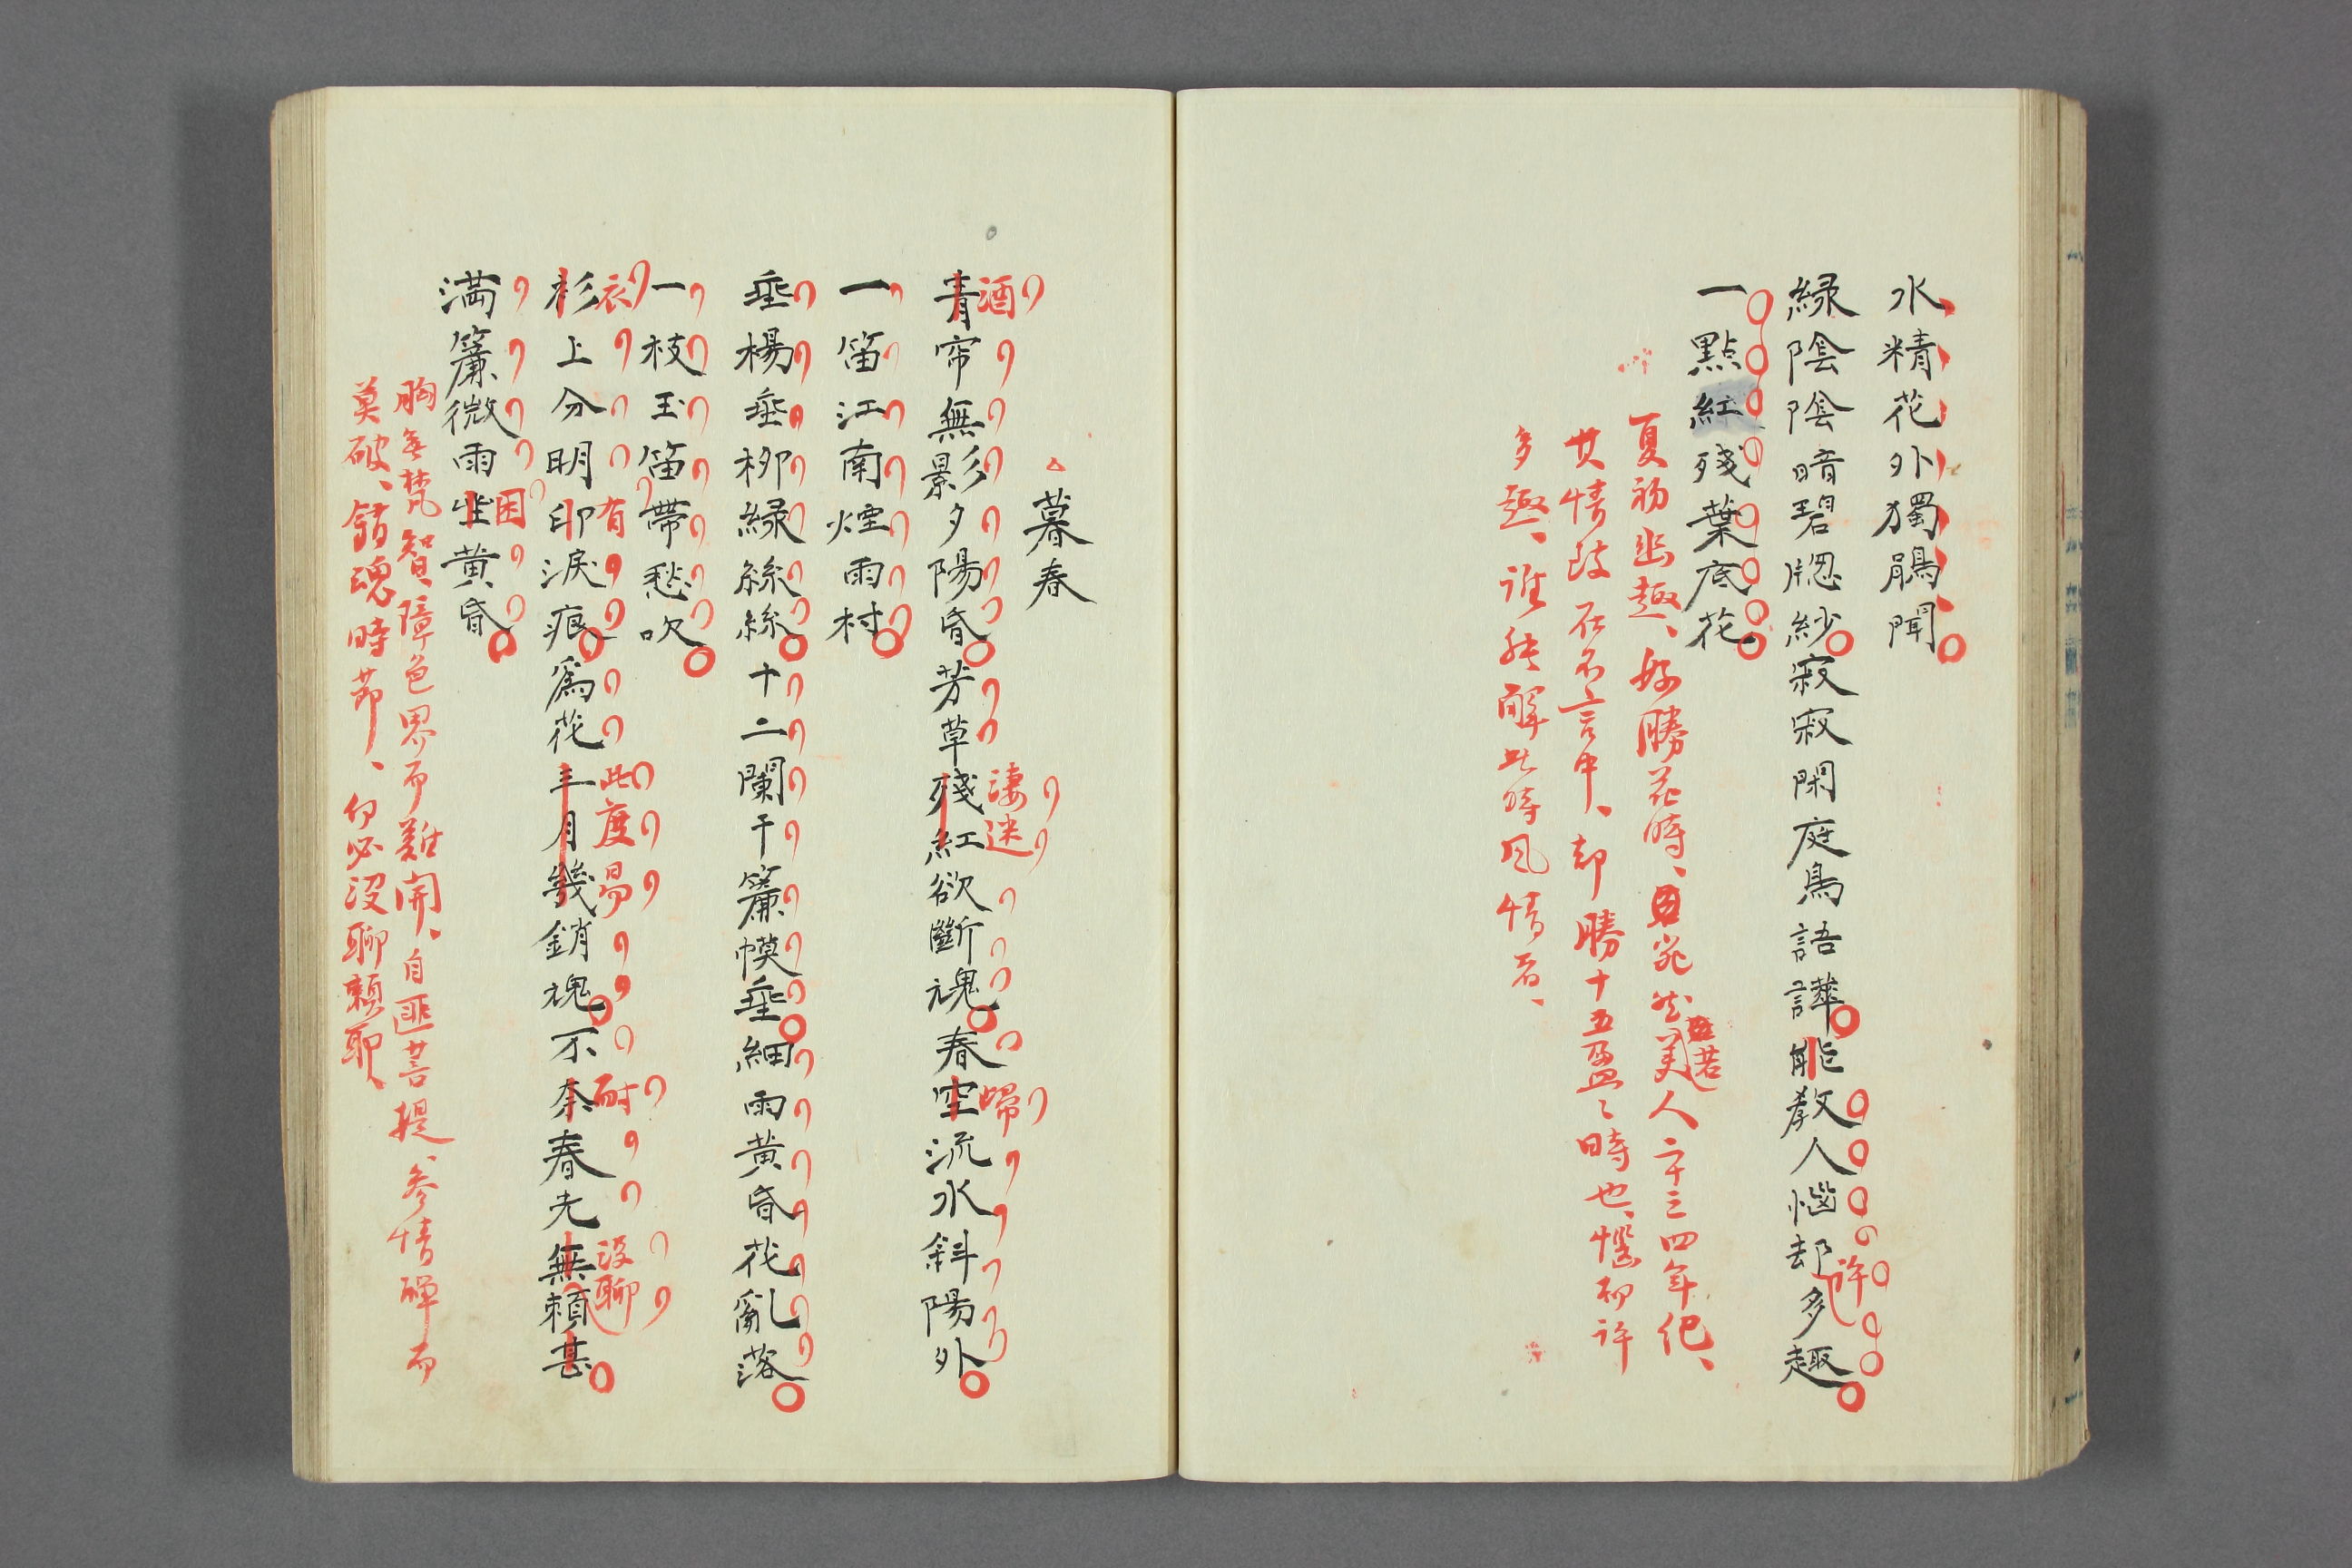 水精花外獨鵑聞
緑陰陰暗碧牕紗寂寂閑庭鳥語譁能教人惱却多趣
許
一點紅殘葉底花
夏初幽趣、好勝花時、宛然美人二十三四年紀、
其情致在不言中、却勝十五盈〻時也、惱却許
多趣、誰能解此時風情者、
暮春
青帘無影夕陽昏芳草殘紅欲斷魂春空流水斜陽外
酒 淒迷 歸
一笛江南煙雨村
垂楊垂柳緑絲絲十二闌干簾幙垂細雨黄昏花亂落
一枝玉笛帶愁吹
衫上分明印淚痕爲花三月幾銷魂不奈春光無頼甚
衣 有 此度易 耐 没聊
満簾微雨坐黄昏
困
胸無梵智、障色界而難開、自匪菩提、參情禪而
莫破、銷魂時節、何必没聊頼耶、